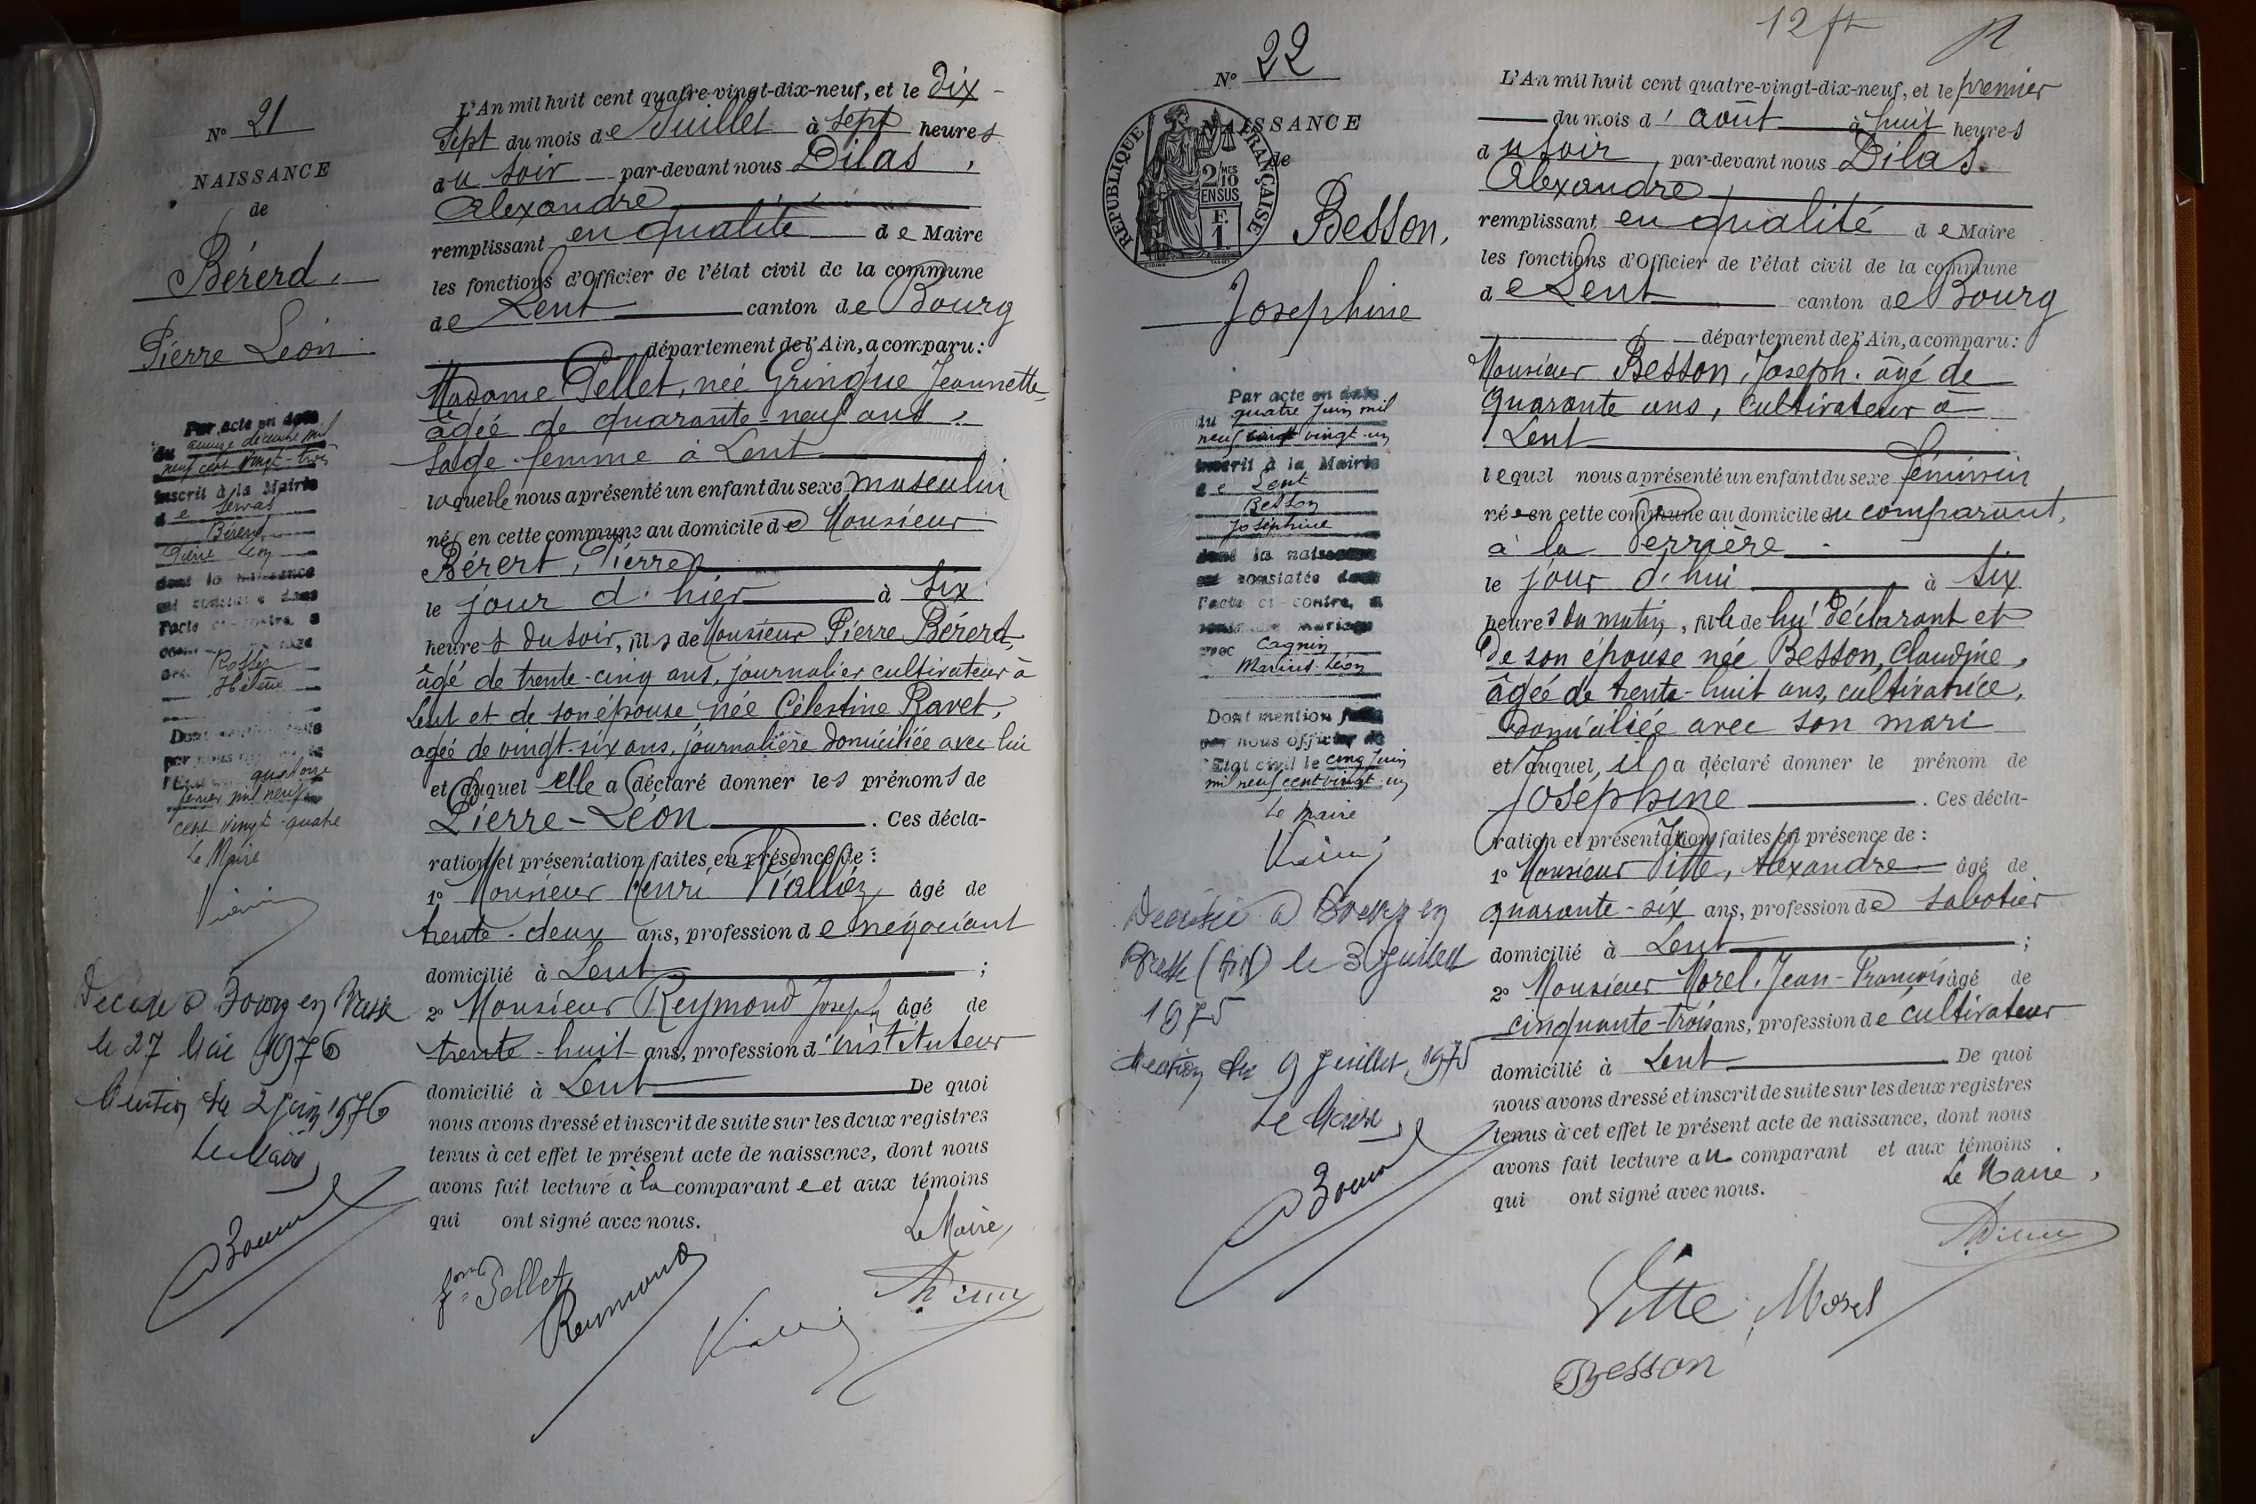 N° 21
NAISSANCE
de
Bérerd
Pierre Léon
Par acte en date
du quinze décembre mil
neuf cent vingt-trois
inscrit à la Mairie
de Servas
Bérerd
Pierre Léon
dont la naissance
est constatée dans
l'acte ci-contre, a
Hélène
Dont mention faite
quatorze
février mil neuf
cent vingt-quatre
Le Maire
Décédé à Bourg en Bresse
le 27 Mai 1976
Mention du 2 juin 1976
Le Maire
L'An mil huit cent quatre-vingt-dix-neuf, et le dix-
sept du mois de Juillet à sept heures
du soir par-devant nous Dilas,
Alexandre
remplissant en qualité de Maire
les fonctions d'Officier de l'état civil de la commune
de Lent canton de Bourg
département de l'Ain, a comparu:
Madame Pellet, née Gringue Jeannette,
âgée de quarante-neuf ans,
Sage-femme à Lent
laquelle nous a présenté un enfant du sexe masculin
né en cette commune au domicile de Monsieur
Bérert, Pierre
le jour d'hier à six
heures du soir, fils de Monsieur Pierre Bérerd,
âgé de trente-cinq ans, journalier cultivateur à
Lent et de son épouse née Célestine Ravet,
agée de vingt-six ans, journalière domiciliée avec lui
et duquel elle a déclaré donner les prénoms de
Pierre-Léon. Ces décla-
ration et présentation faites en présence de:
1° Monsieur Henri Viallier âgé de
trente-deux ans, profession de négociant
domicilié à Lent;
2° Monsieur Reymond Joseph âgé de
trente-huit ans, profession d'instituteur
domicilié à Lent De quoi
nous avons dressé et inscrit de suite sur les deux registres
tenus à cet effet le présent acte de naissance, dont nous
avons fait lecture à la comparante et aux témoins
qui ont signé avec nous.
Le Maire,
Pellet
Reymond
12 ft
N° 22
NAISSANCE
de
REPUBLIQUE FRANÇAISE
2/10 MES
EN SUS
F.
1.
Besson,
Josephine
Par acte en date
du quatre Juin mil
neuf cent vingt-un
inscrit à la Mairie
de Lent
Besson
Joséphine
dont la naissance
est constatée dans
l'acte ci-contre, a
contracté mariage
avec Cagnin
Marius-Léon
Dont mention faite
par nous officier de
l'Etat civil le cinq Juin
mil neuf cent vingt-un
Le Maire
Décédée à Bourg en
Bresse (Ain) le 3 Juillet
1975
Mention du 9 Juillet 1975
Le Maire
L'An mil huit cent quatre-vingt-dix-neuf, et le premier
du mois d'août à huit heures
du soir, par-devant nous Dilas
Alexandre
remplissant en qualité de Maire
les fonctions d'Officier de l'état civil de la commune
de Lent canton de Bourg
département de l'Ain, a comparu:
Monsieur Besson, Joseph. âgé de
quarante ans, Cultivateur à
Lent
lequel nous a présenté un enfant du sexe féminin
née en cette commune au domicile du comparant,
à la Verrière
le jour d'hui à six
heures du matin, fille de lui déclarant et
de son épouse née Besson, Claudine,
âgée de trente-huit ans, cultivatrice,
domiciliée avec son mari
et duquel, il a déclaré donner le prénom de
Joséphine. Ces décla-
ration et présentation faites en présence de:
1° Monsieur Vitte, Alexandre âgé de
quarante-six ans, profession de sabotier
domicilié à Lent;
2° Monsieur Morel. Jean-François âgé de
cinquante-trois ans, profession de cultivateur
domicilié à Lent De quoi
nous avons dressé et inscrit de suite sur les deux registres
tenus à cet effet le présent acte de naissance, dont nous
avons fait lecture au comparant et aux témoins
qui ont signé avec nous.
Le Maire,
Vitte Morel
Besson